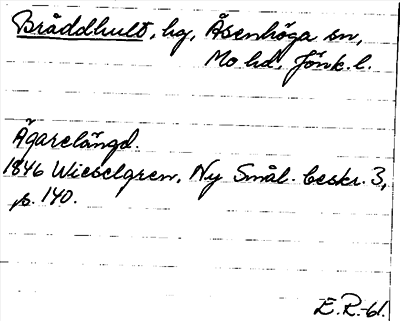 Bråddhult, hg, Åsenhöga sn,
Mo hd, Jönk. l.
Ägarelängd.
1846 Wieselgren, Ny Smål. beskr. 3,
p. 140.
E.R.-61.